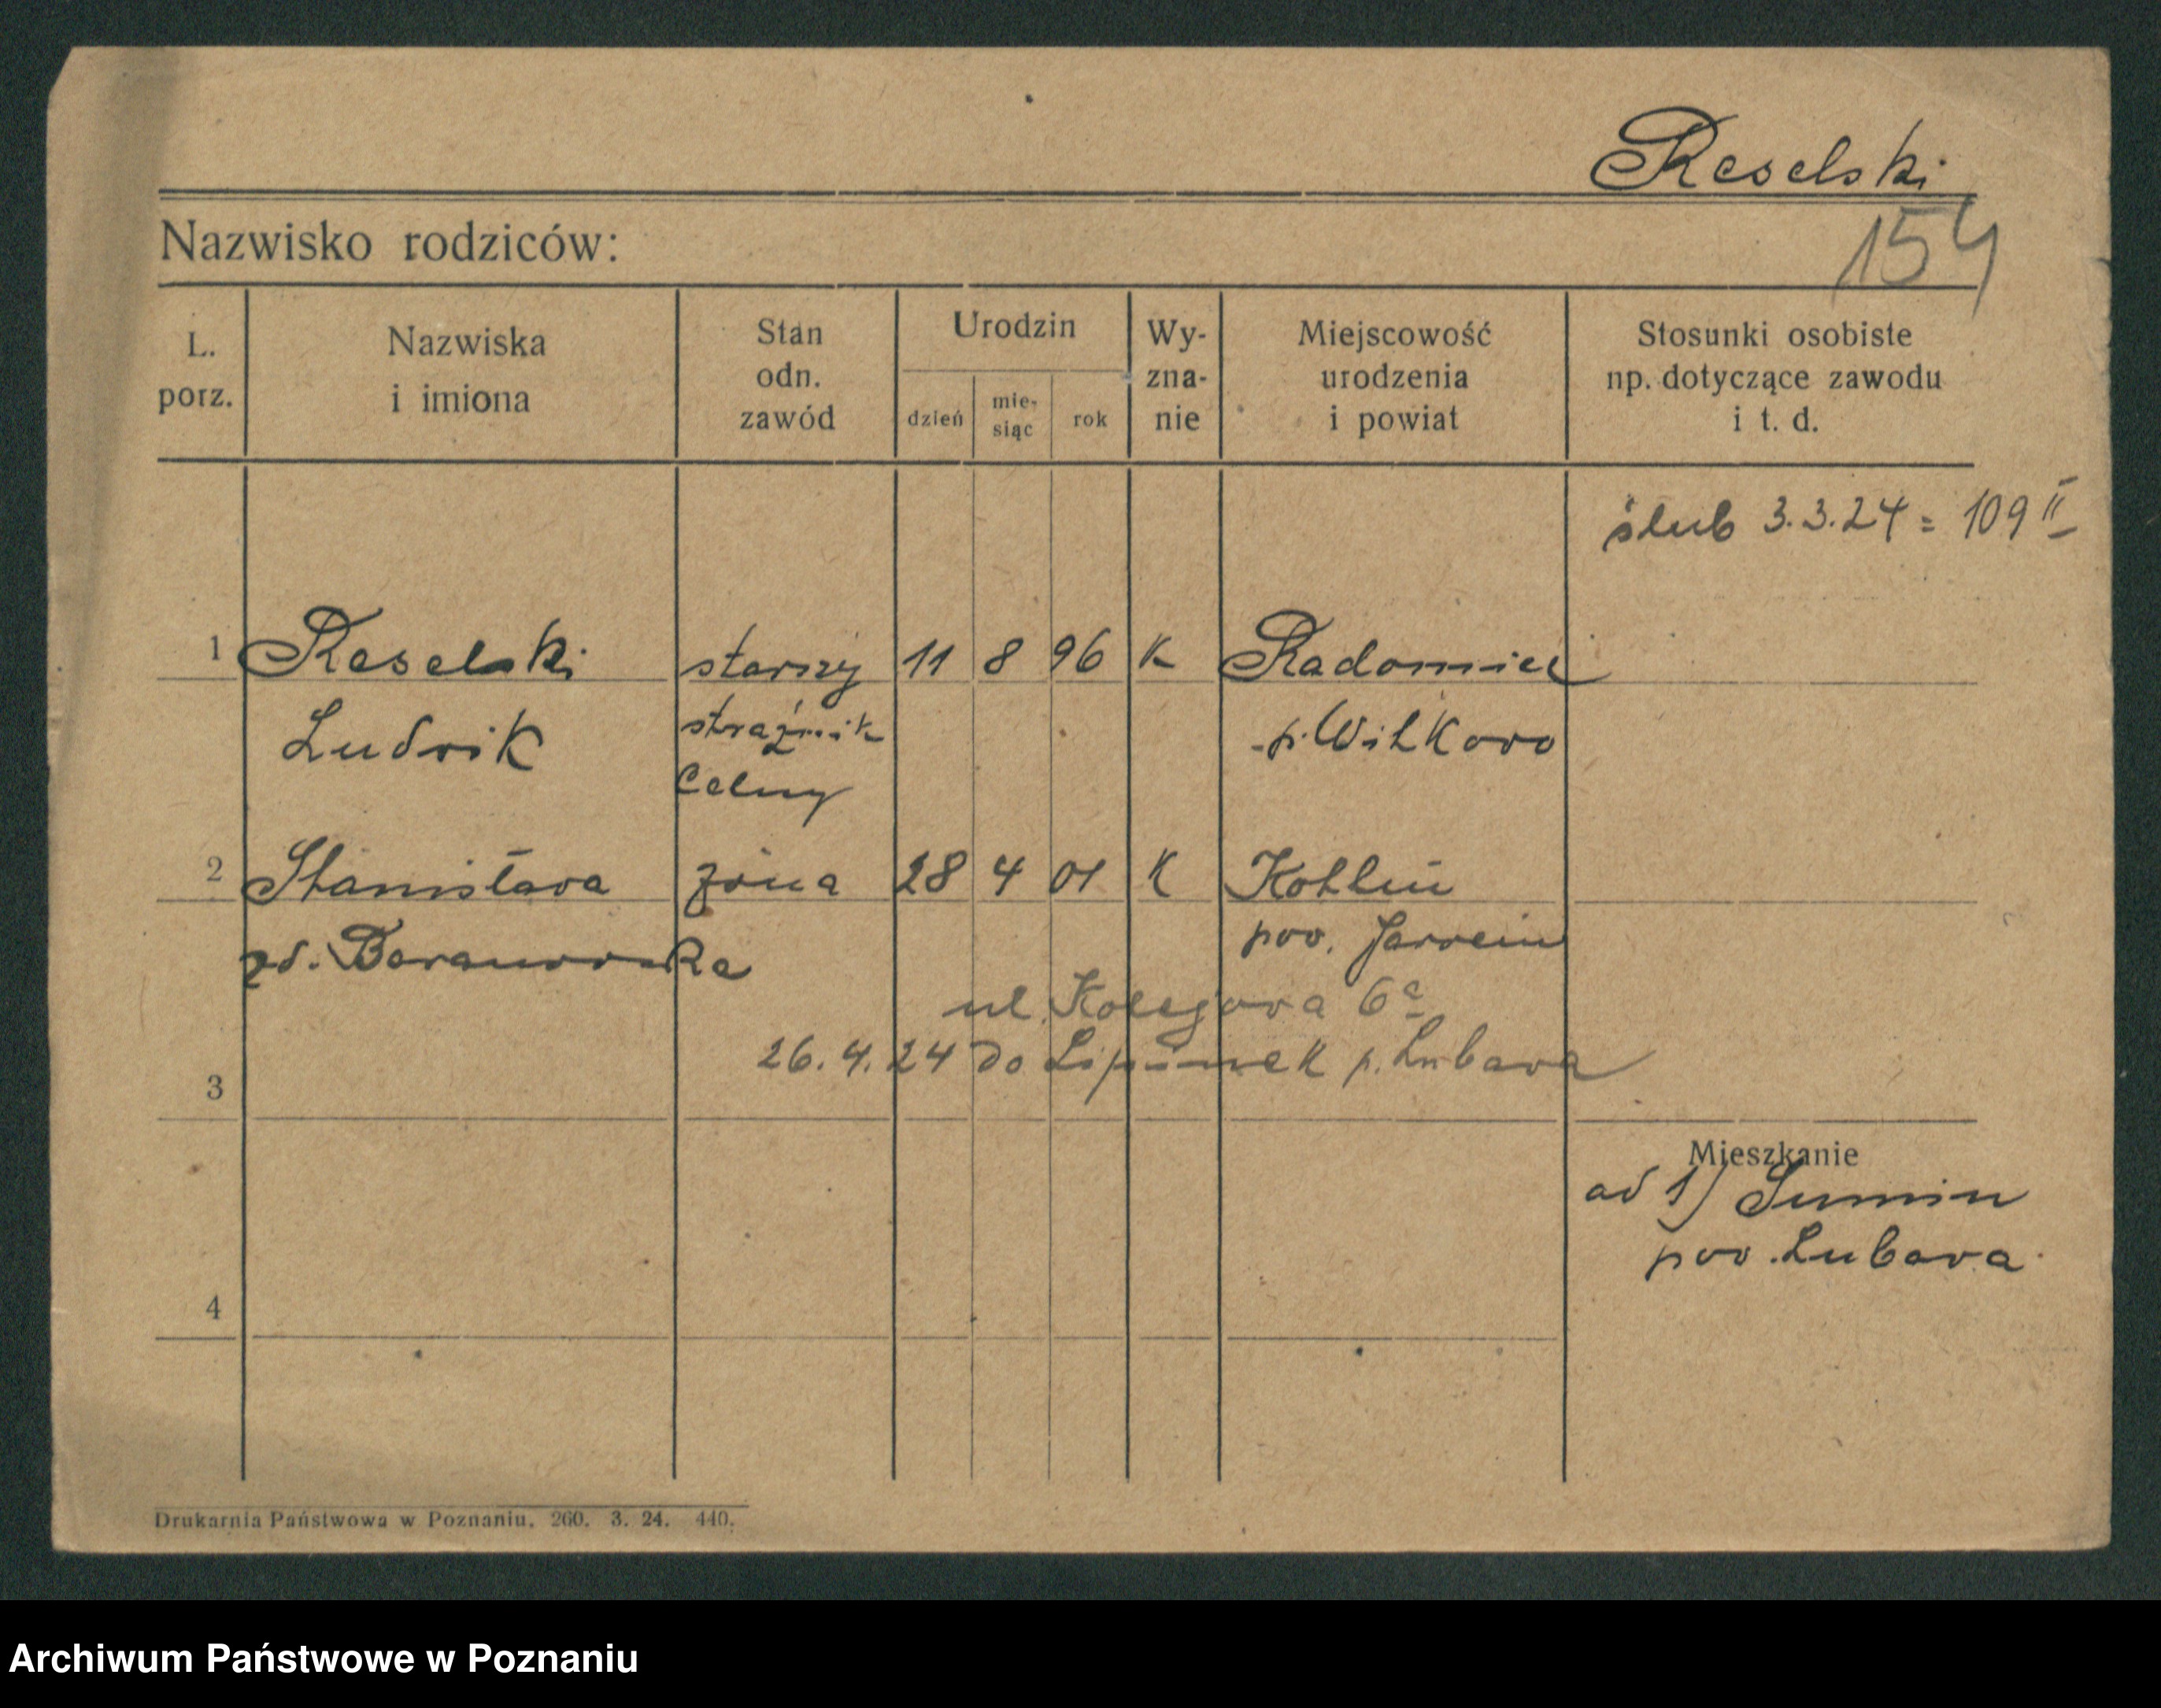 Reselski
154
Nazwisko rodziców:
L. porz.
Nazwiska i imiona
Stan odn. zawód
Urodzin
dzień
mie-
siąc
rok
Wy-
zna-
nie
Miejscowość urodzenia i powiat
Stosunki osobiste np. dotyczące zawodu i t. d.
ślub 3.3.24 = 109 II
1 Reselski starszy 11 8 96 K Radomice
Ludwik strażnik p. Witkowo
Celny
2 Stanisława żona 28 4 01 K Kotlin
zd. Baranowska pow. Jarocin
ul. Kolejowa 6a
26.4.24 do Lipinek p. Lubawa
3
Mieszkanie
ad 1) Sumin
pow. Lubawa
4
Drukarnia Państwowa w Poznaniu. 260. 3. 24. 440.
Archiwum Państwowe w Poznaniu